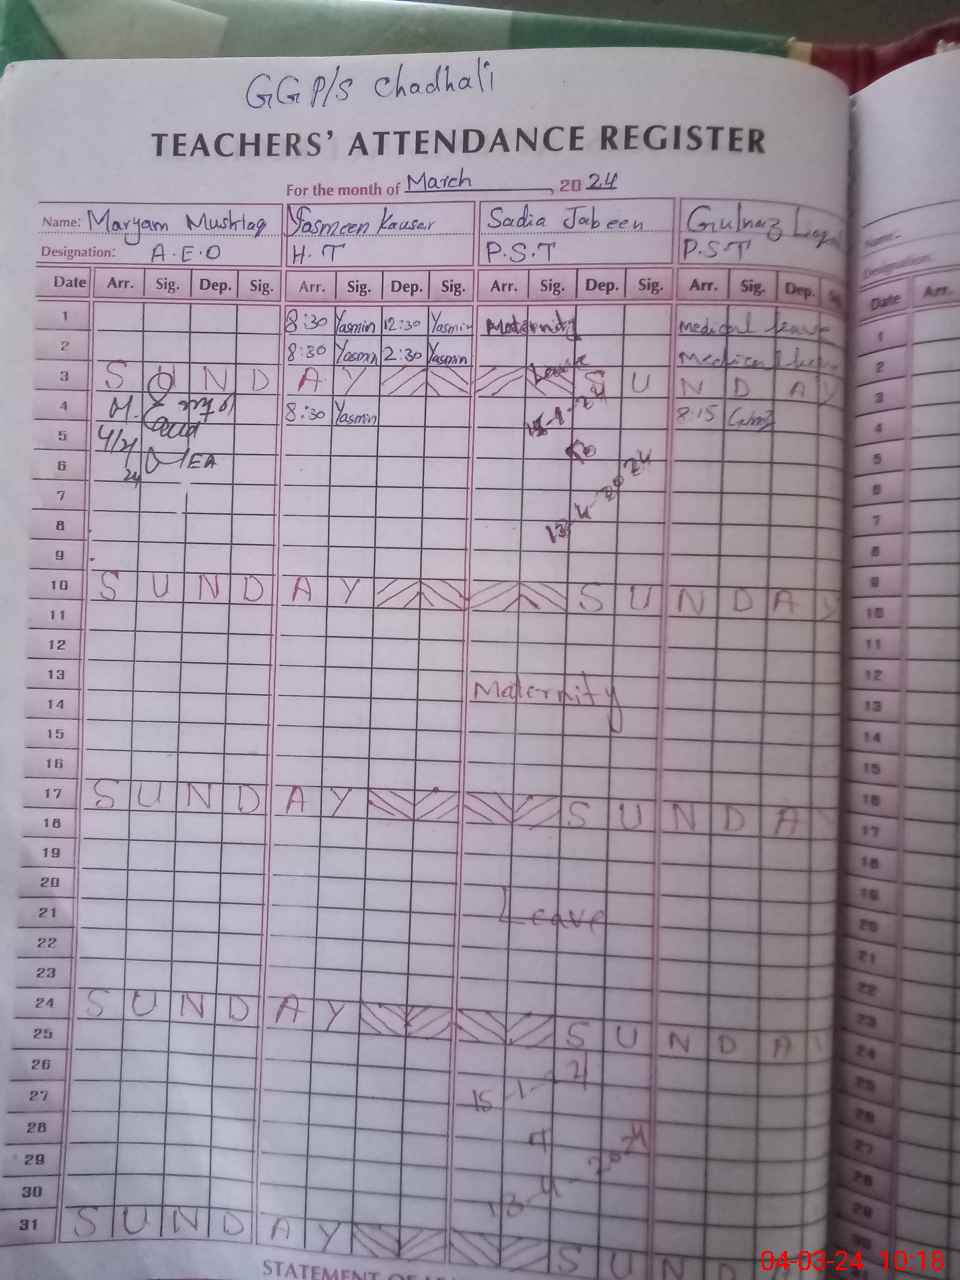 GGP/S Chadhali
TEACHERS' ATTENDANCE REGISTER
For the month of March, 2024
Name: Maryam Mushtaq Yasmeen Kausar Sadia Jabeen Gulnaz
Designation: A.E.O H.T P.S.T P.S.T
Date Arr. Sig. Dep. Sig. Arr. Sig. Dep. Sig. Arr. Sig. Dep. Sig. Arr. Sig. Dep.
1 8:30 Yasmin 12:30 Yasmin Maternity Medical leave
2 8:30 Yasmin 2:30 Yasmin Leave Medical
3 SUNDAY SUNDAY
4 8:30 Yasmin 8:15
5
6 DEA
7
8 13-4-2024
9
10 SUNDAY SUNDAY
11
12
13 Maternity
14
15
16
17 SUNDAY SUNDAY
18
19
20
21 Leave
22
23
24 SUNDAY SUNDAY
25
26
27
28
29
30 13-4-2024
31 SUNDAY SUND
STATEMENT OF
Name:
Designation:
Date Arr.
1
2
3
4
5
6
7
8
9
10
11
12
13
14
15
16
17
18
19
20
21
22
23
24
25
26
27
28
29
30
04-03-24 10:18